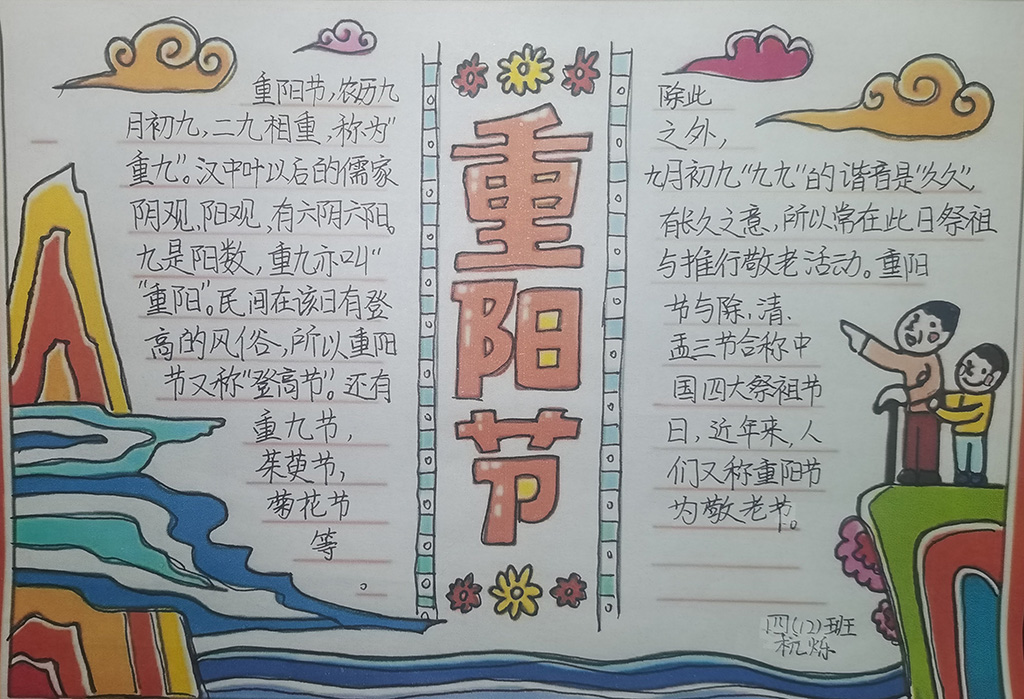 重阳节，农历九
月初九，二九相重，称为"
重九"。汉中叶以后的儒家
阴观，阳观，有六阴六阳。
九是阳数，重九亦叫"
"重阳"。民间在该日有登
高的风俗，所以重阳
节又称"登高节"。还有
重九节，
茱萸节，
菊花节
等
。
重阳节
除此
之外，
九月初九"九九"的谐音是"久久"，
有长久之意，所以常在此日祭祖
与推行敬老活动。重阳
节与除，清、
盂三节合称中
国四大祭祖节
日，近年来，人
们又称重阳节
为敬老节。
四(12)班
烁